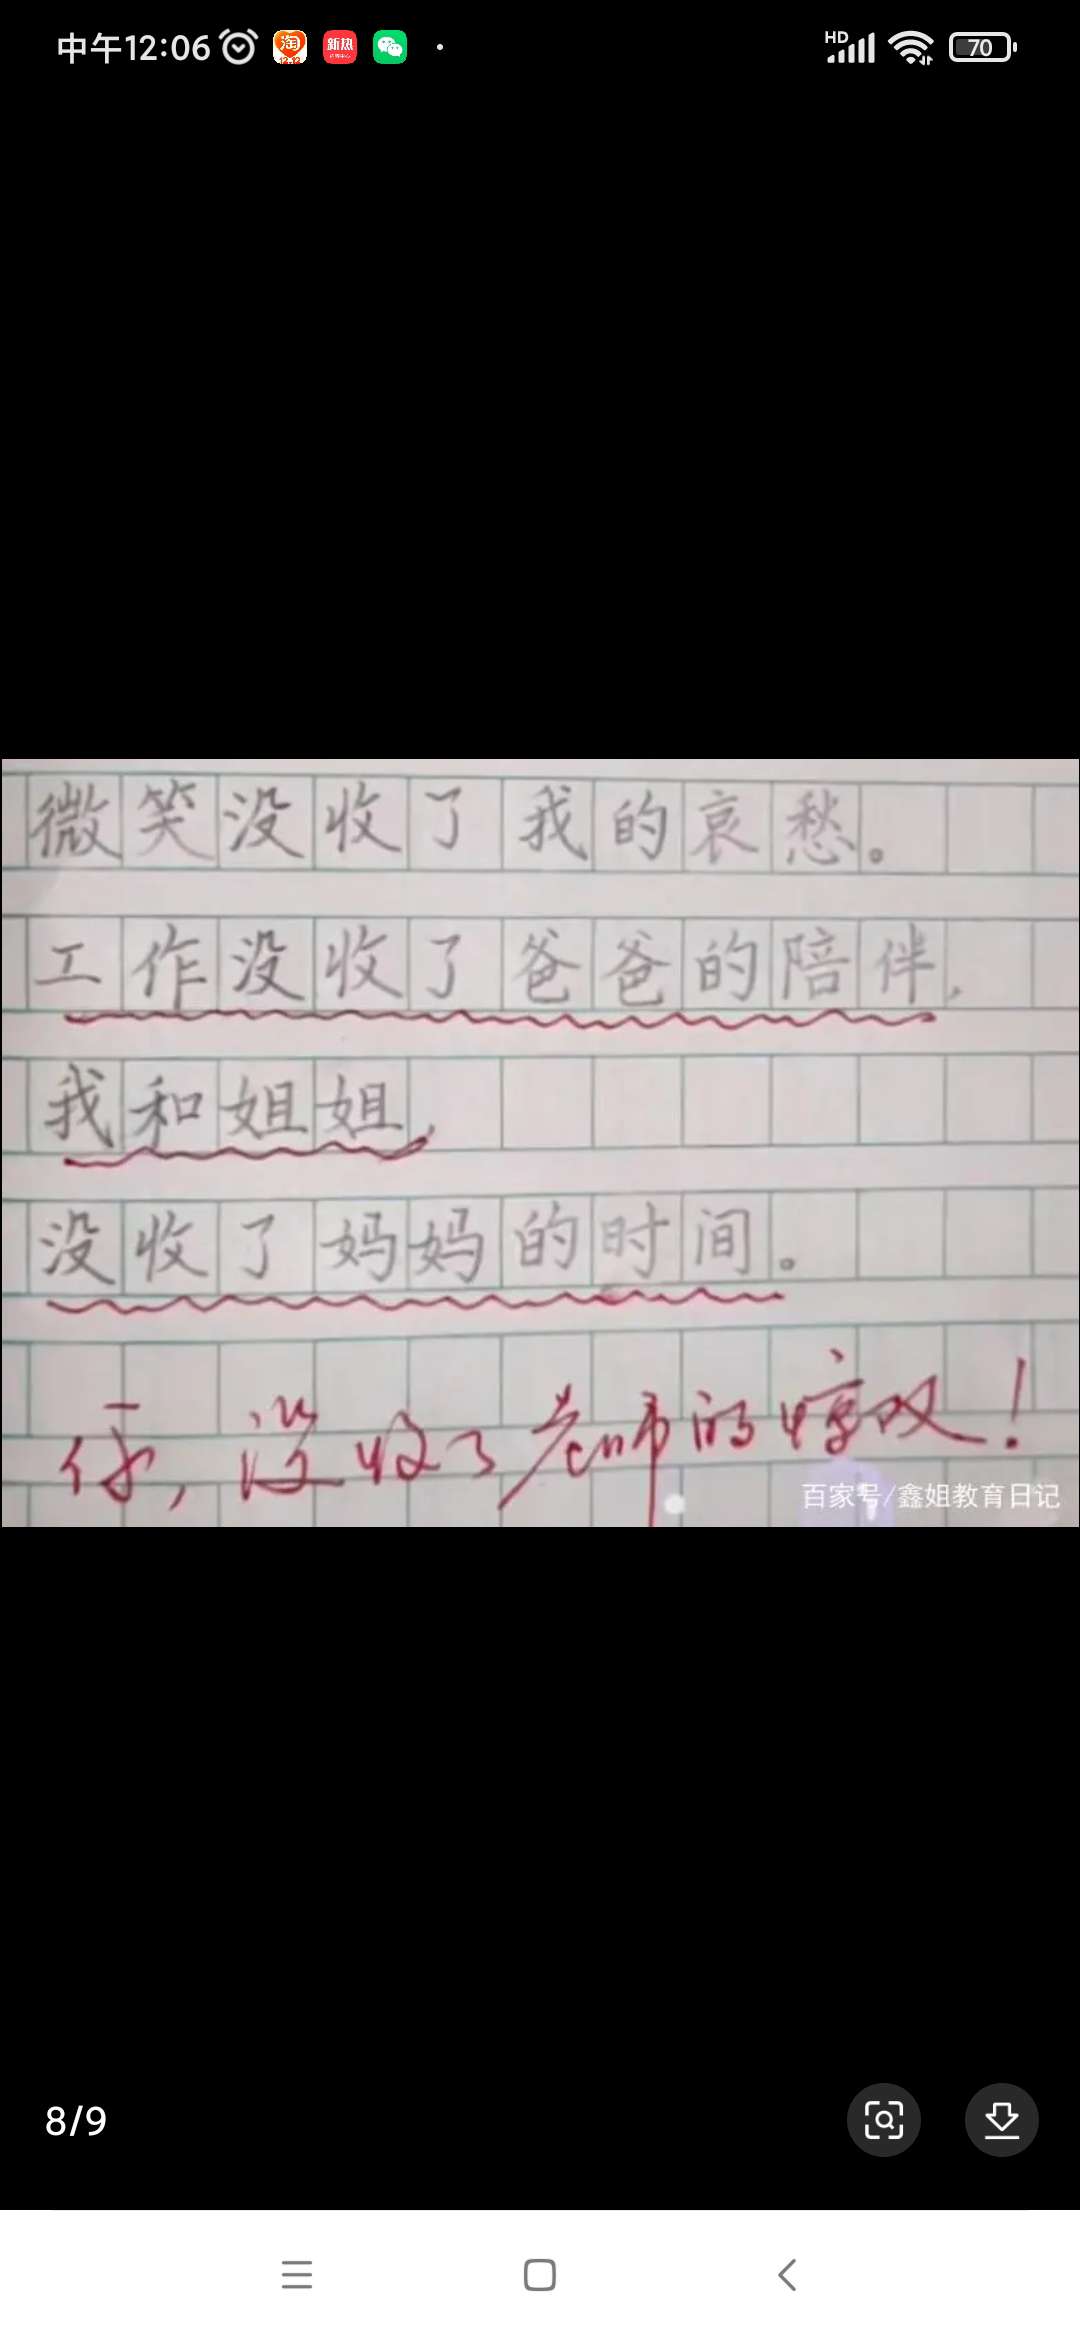 中午12:06
淘
12.12
新热
HD
70
微笑没收了我的哀愁。
工作没收了爸爸的陪伴,
我和姐姐,
没收了妈妈的时间。
你,没收了老师的惊叹!
百家号/鑫姐教育日记
8/9